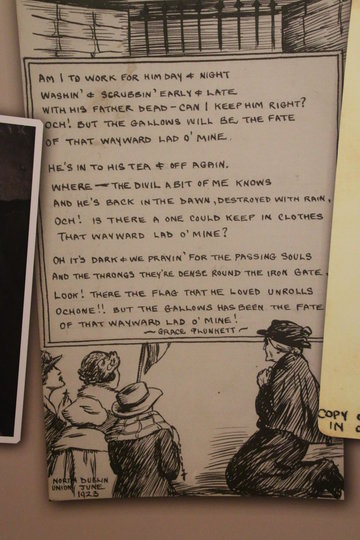 AM I TO WORK FOR HIM DAY & NIGHT
WASHIN' & SCRUBBIN' EARLY & LATE
WITH HIS FATHER DEAD - CAN I KEEP HIM RIGHT?
OCH! BUT THE GALLOWS WILL BE THE FATE
OF THAT WAYWARD LAD O' MINE.
HE'S IN TO HIS TEA & OFF AGAIN,
WHERE - THE DIVIL A BIT OF ME KNOWS
AND HE'S BACK IN THE DAWN, DESTROYED WITH RAIN,
OCH! IS THERE A ONE COULD KEEP IN CLOTHES
THAT WAYWARD LAD O' MINE?
OH IT'S DARK & WE PRAYIN' FOR THE PASSING SOULS
AND THE THRONGS THEY'RE DENSE ROUND THE IRON GATE,
LOOK! THERE THE FLAG THAT HE LOVED UNROLLS
OCHONE!! BUT THE GALLOWS HAS BEEN THE FATE
OF THAT WAYWARD LAD O' MINE!
~ GRACE PLUNKETT ~
NORTH DUBLIN
UNION JUNE
1923
COPY
IN